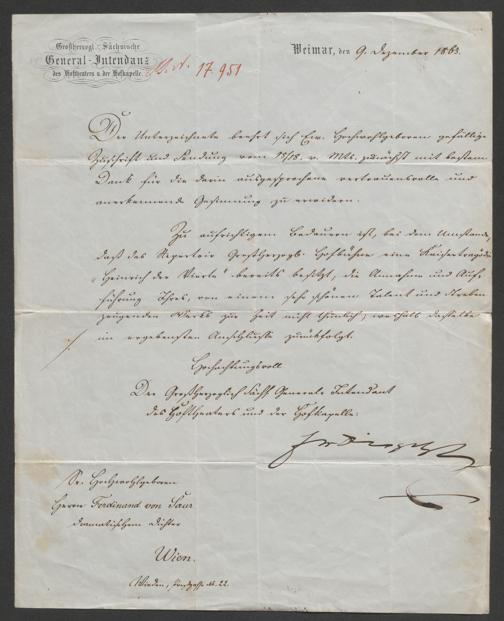 Großherzogl. Sächsische
General-Intendanz
des Hoftheaters u. der Hofkapelle.
17.951
Weimar, den 9. Dezember 1863.
Der Unterzeichnete beehrt sich Ew. Hochwohlgeboren gefällige
Zuschrift und Sendung vom v. Mts. zunächst mit bestem
Dank für die darin ausgesprochene vertrauensvolle und
anerkennende Gesinnung zu erwidern.
Zu aufrichtigem Bedauern ist, bei dem Umstande,
daß das Repertoir Großherzogl. Hofbühne eine Kaisertragödie
"Heinrich der Vierte" bereits besitzt, die Annahme und Auf-
führung Ihres, von einem sehr schönen Talent und Streben
zeugenden Werks zur Zeit nicht thunlich, weshalb dasselbe
im ergebensten Anschlusse zurückfolgt.
Hochachtungsvoll
Der Großherzoglich Sächs. General-Intendant
des Hoftheaters und der Hofkapelle:
Sr. Hochwohlgeboren
Herrn Ferdinand von Saar
dramatischem Dichter
Wien.
Wieden, No. 22.